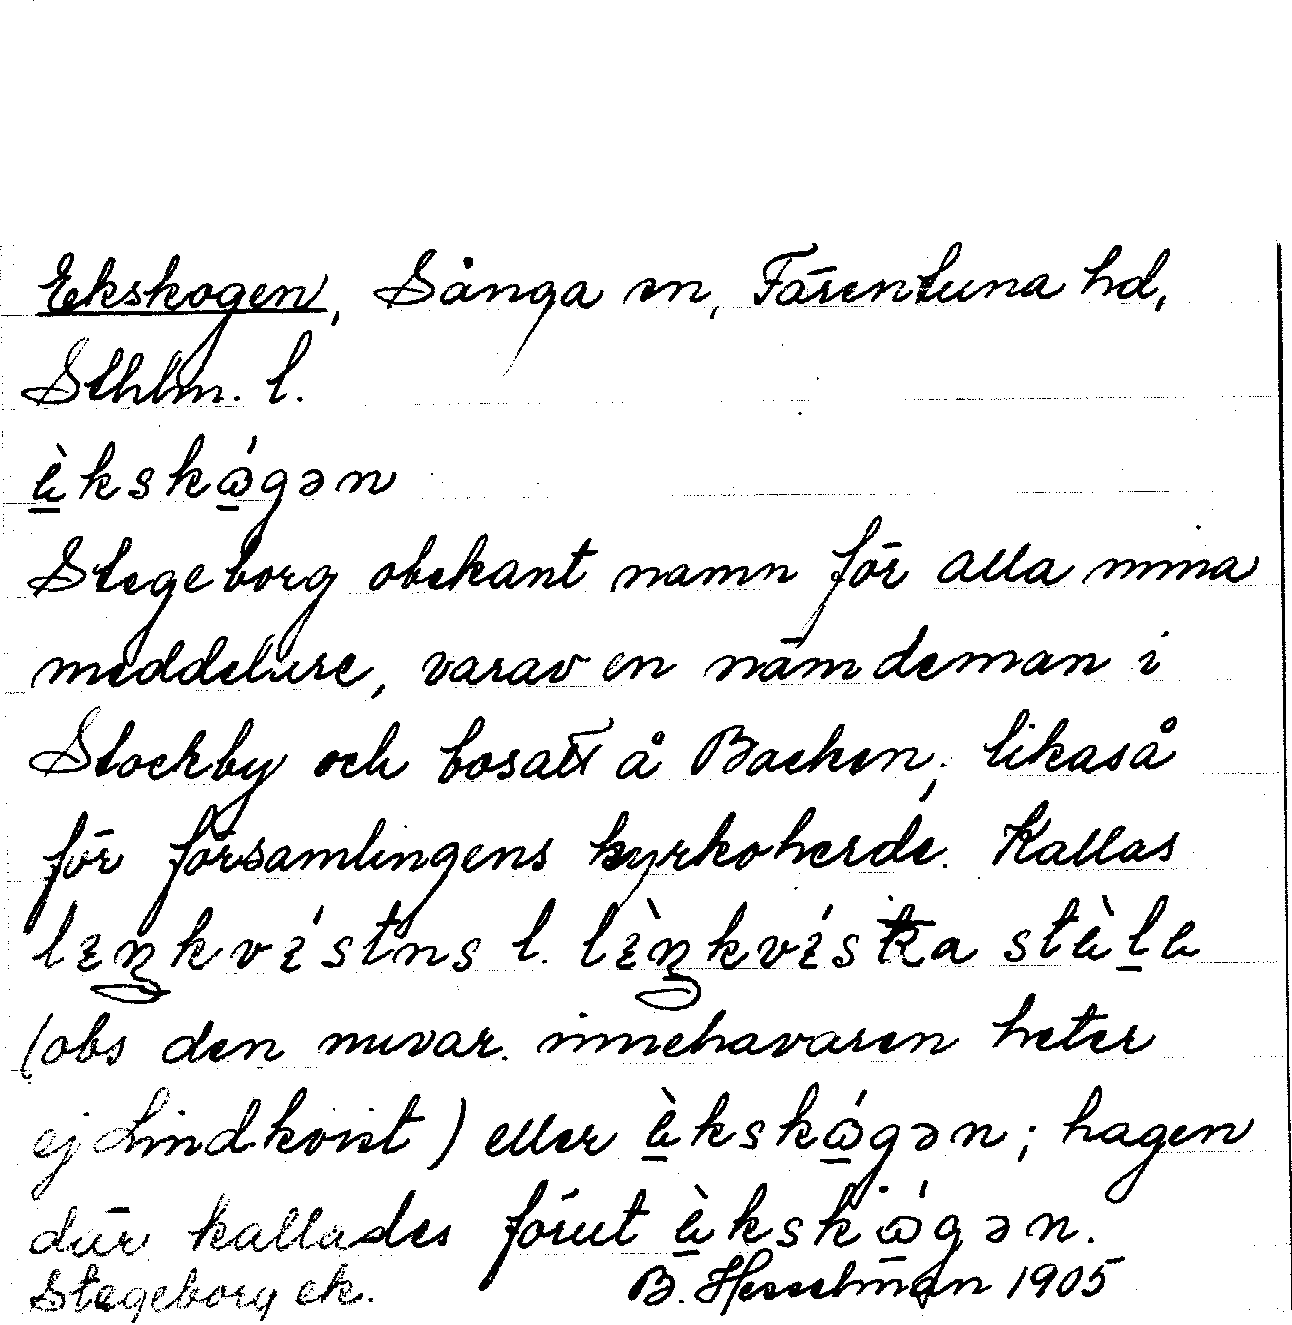 Ekskogen, Sånga sn, Färentuna hd,
Sthlm. l.
èkskǿgən
Stegeborg obekant namn för alla mina
meddelare, varav en nämdeman i
Stockby och bosatt å Backen, likaså
för församlingens kyrkoherde. Kallas
lıŋkvístns l. lìŋkvísta stèle
(obs den nuvar. innehavaren heter
ej Lindkvist) eller èkskǿgən; hagen
där kallades förut èkskǿgən.
Stegeborg ek. B. Hesselman 1905